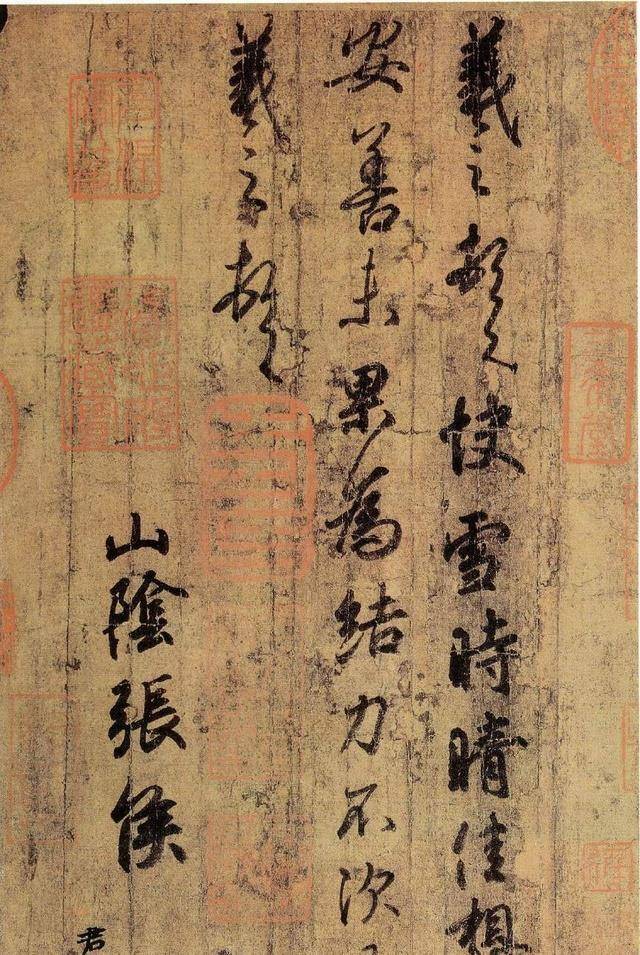 羲之頓首快雪時晴佳想
安善未果為結力不次
羲之頓首
山陰張侯
君